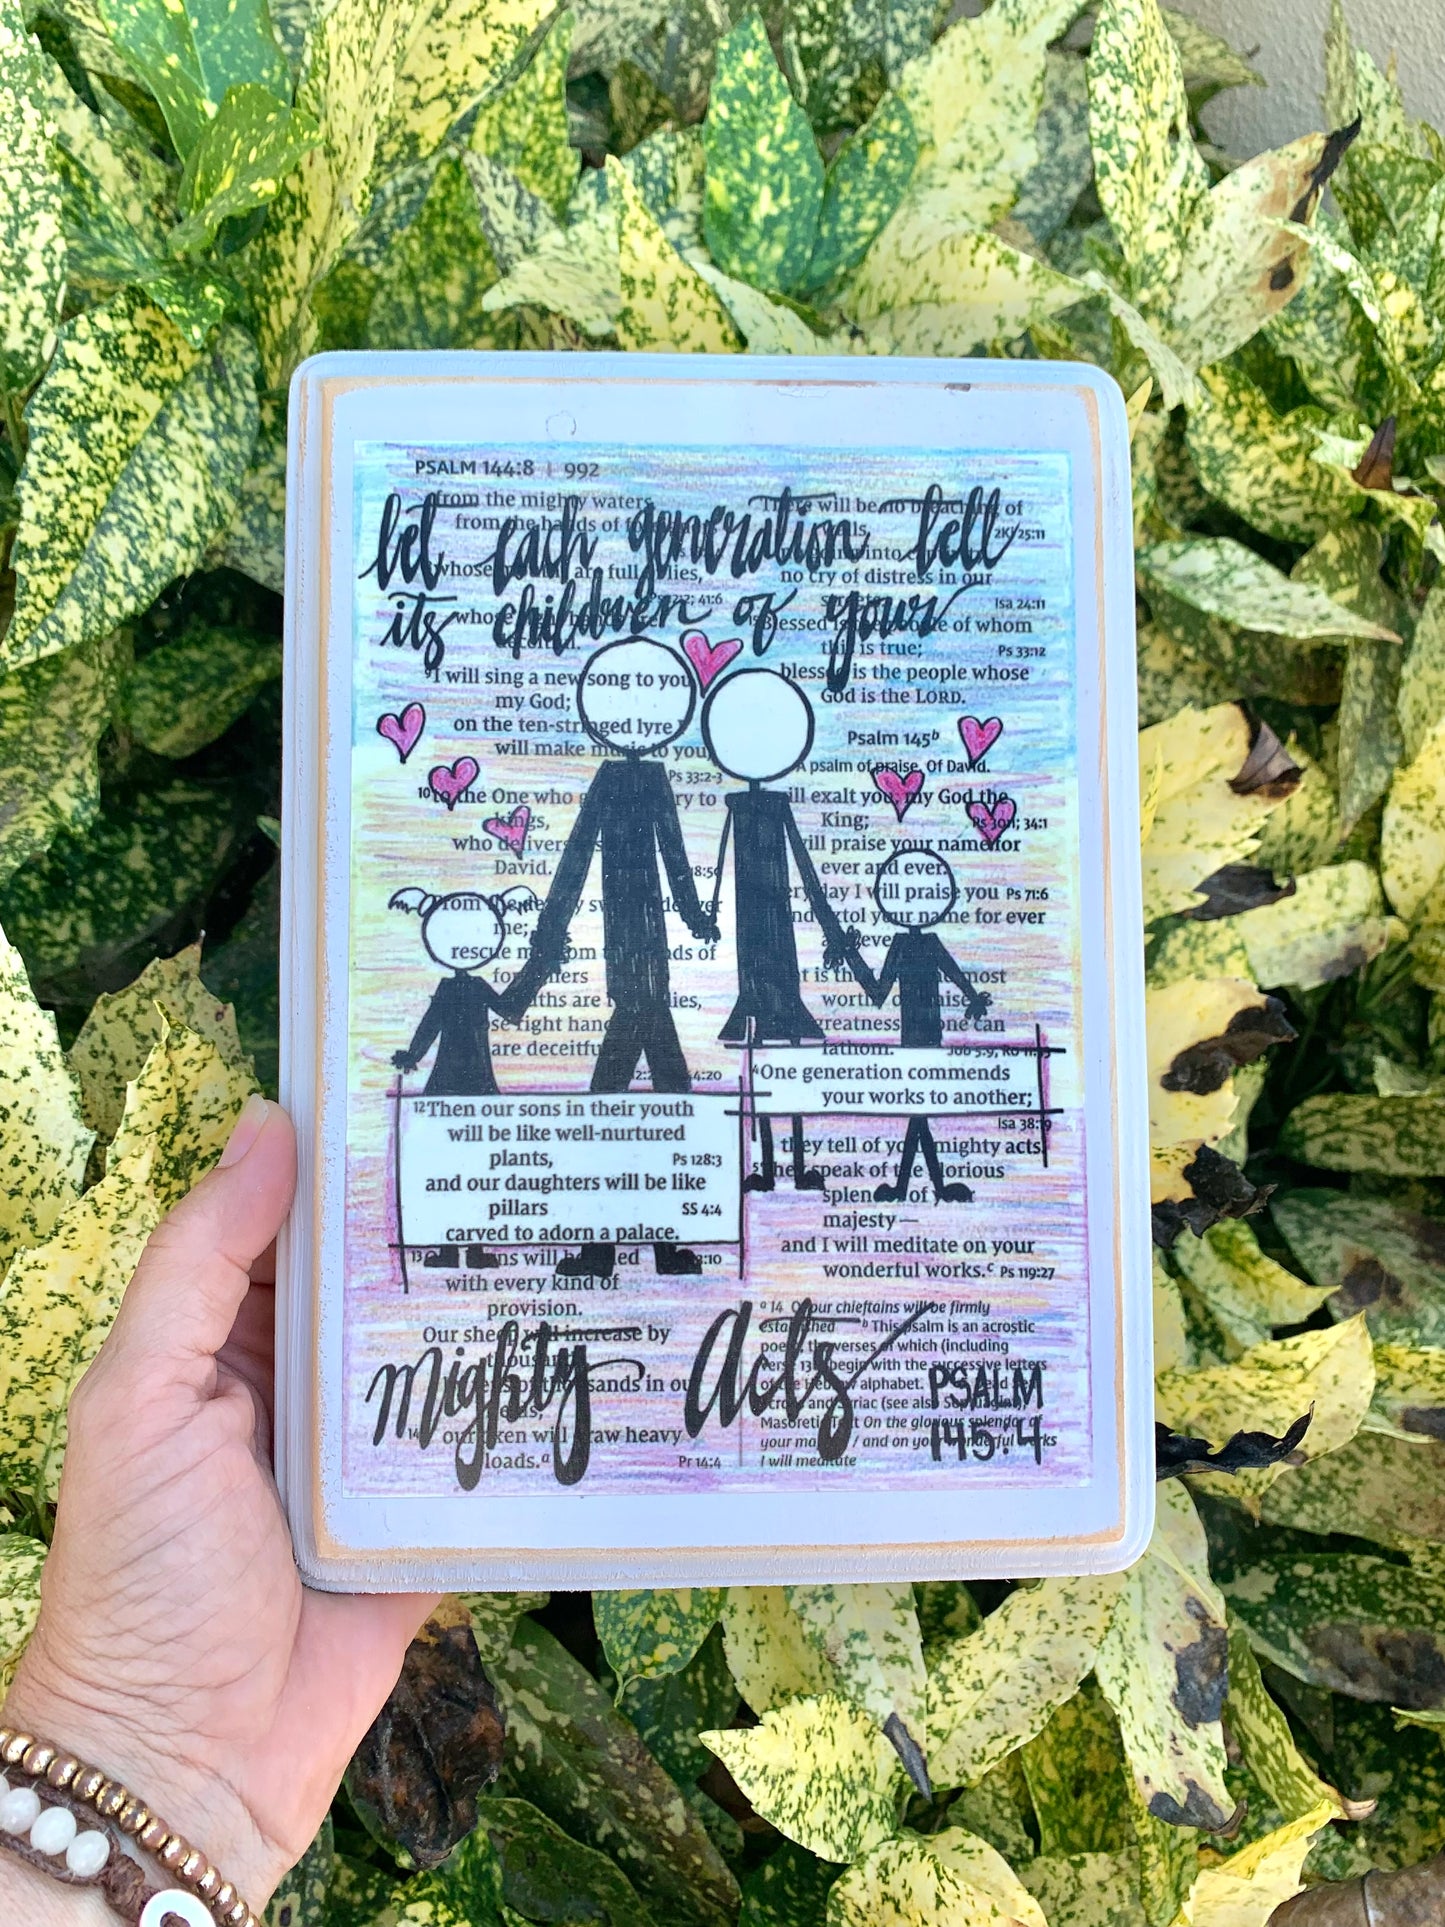 PSALM 144:8 | 992
let each generation tell
its children of your
mighty acts
PSALM
145:4
from the mighty waters,
from the hands of
whose are full lies,
41:6
whose
⁹I will sing a new song to you,
my God;
on the ten-stringed lyre I
will make music to you,
Ps 33:2-3
¹⁰to the One who ry to
kings,
who delivers
David.
From the deadly
me;
rescue me from the hands of
are lies,
right hand
are deceitful
¹²Then our sons in their youth
will be like well-nurtured
plants, Ps 128:3
and our daughters will be like
pillars SS 4:4
carved to adorn a palace.
¹³ will be
with every kind of
provision.
Our sheep will increase by
thousands,
of thousands in our
¹⁴our oxen will draw heavy
loads.ᵃ Pr 14:4
There will be no breaching of
walls, 2Ki 25:11
no going into
no cry of distress in our
Isa 24:11
¹⁵Blessed is the people of whom
this is true; Ps 33:12
blessed is the people whose
God is the LORD.
Psalm 145ᵇ
A psalm of praise. Of David.
will exalt you, my God the
King; Ps 30:1; 34:1
will praise your name for
ever and ever.
Every day I will praise you Ps 71:6
and extol your name for ever
and ever.
is the most
worthy of praise;
greatness no one can
fathom. Job 5:9; Ro 11:33
⁴One generation commends
your works to another;
Isa 38:19
they tell of your mighty acts.
⁵They speak of the glorious
splendor of your
majesty—
and I will meditate on your
wonderful works.ᶜ Ps 119:27
ᵃ 14 Or our chieftains will be firmly
established ᵇ This psalm is an acrostic
poem, the verses of which (including
verse 13b) begin with the successive letters
of the Hebrew alphabet.
Scrolls and Syriac (see also Septuagint);
Masoretic Text On the glorious splendor of
your majesty / and on your wonderful works
I will meditate